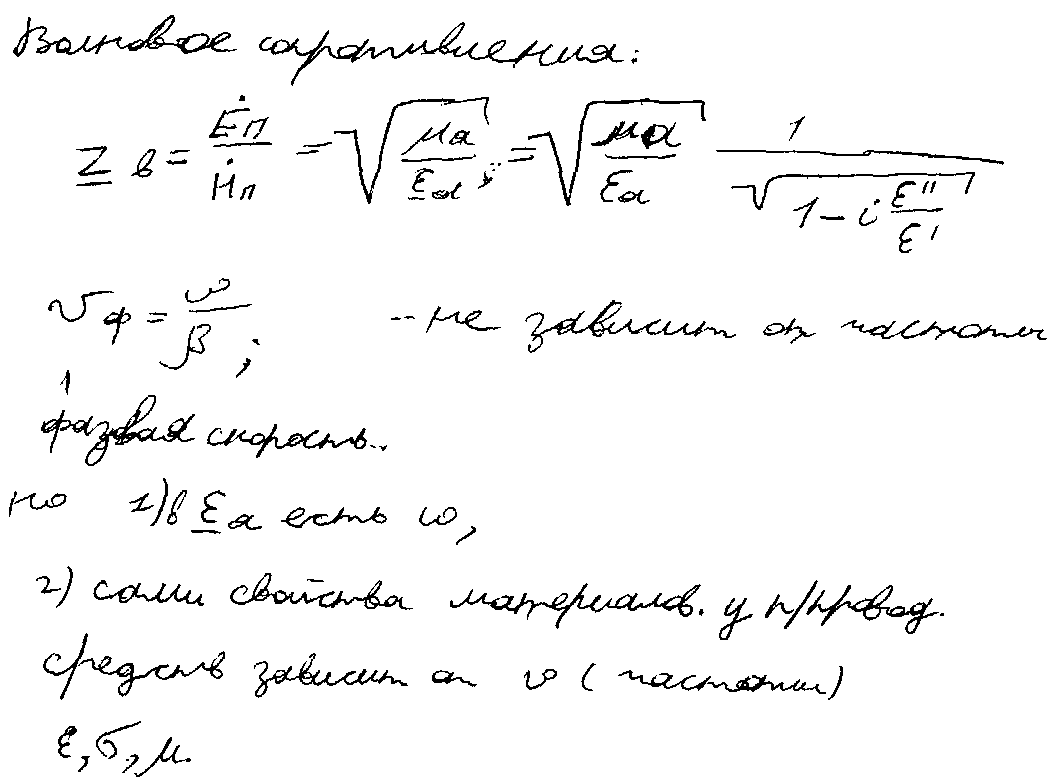 Волновое сопротивления:
Z в = Ėп / Ḣп = √(μа / εа); = √(μа / εа) 1 / √(1 - i ε'' / ε')
vф = ω / β; - не зависит от частоты
фазовая скорость.
но 1) в εа есть ω,
2) сами свойства материалов. у п/провод.
средств зависит от ω (частоты)
ε, σ, μ.